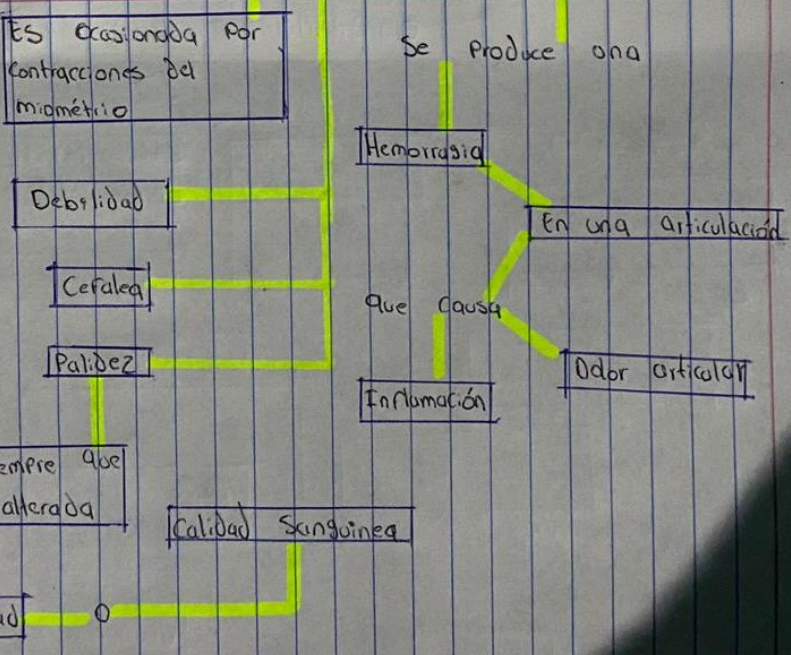 Es Ocasionada Por
Contracciones Del
miométrio
Debilidad
Cefalea
Palidez
empre que
alterada
Calidad Sanguinea
ad
O
Se Produce una
Hemorragia
En una articulación
que causa
Inflamación
Dolor articular